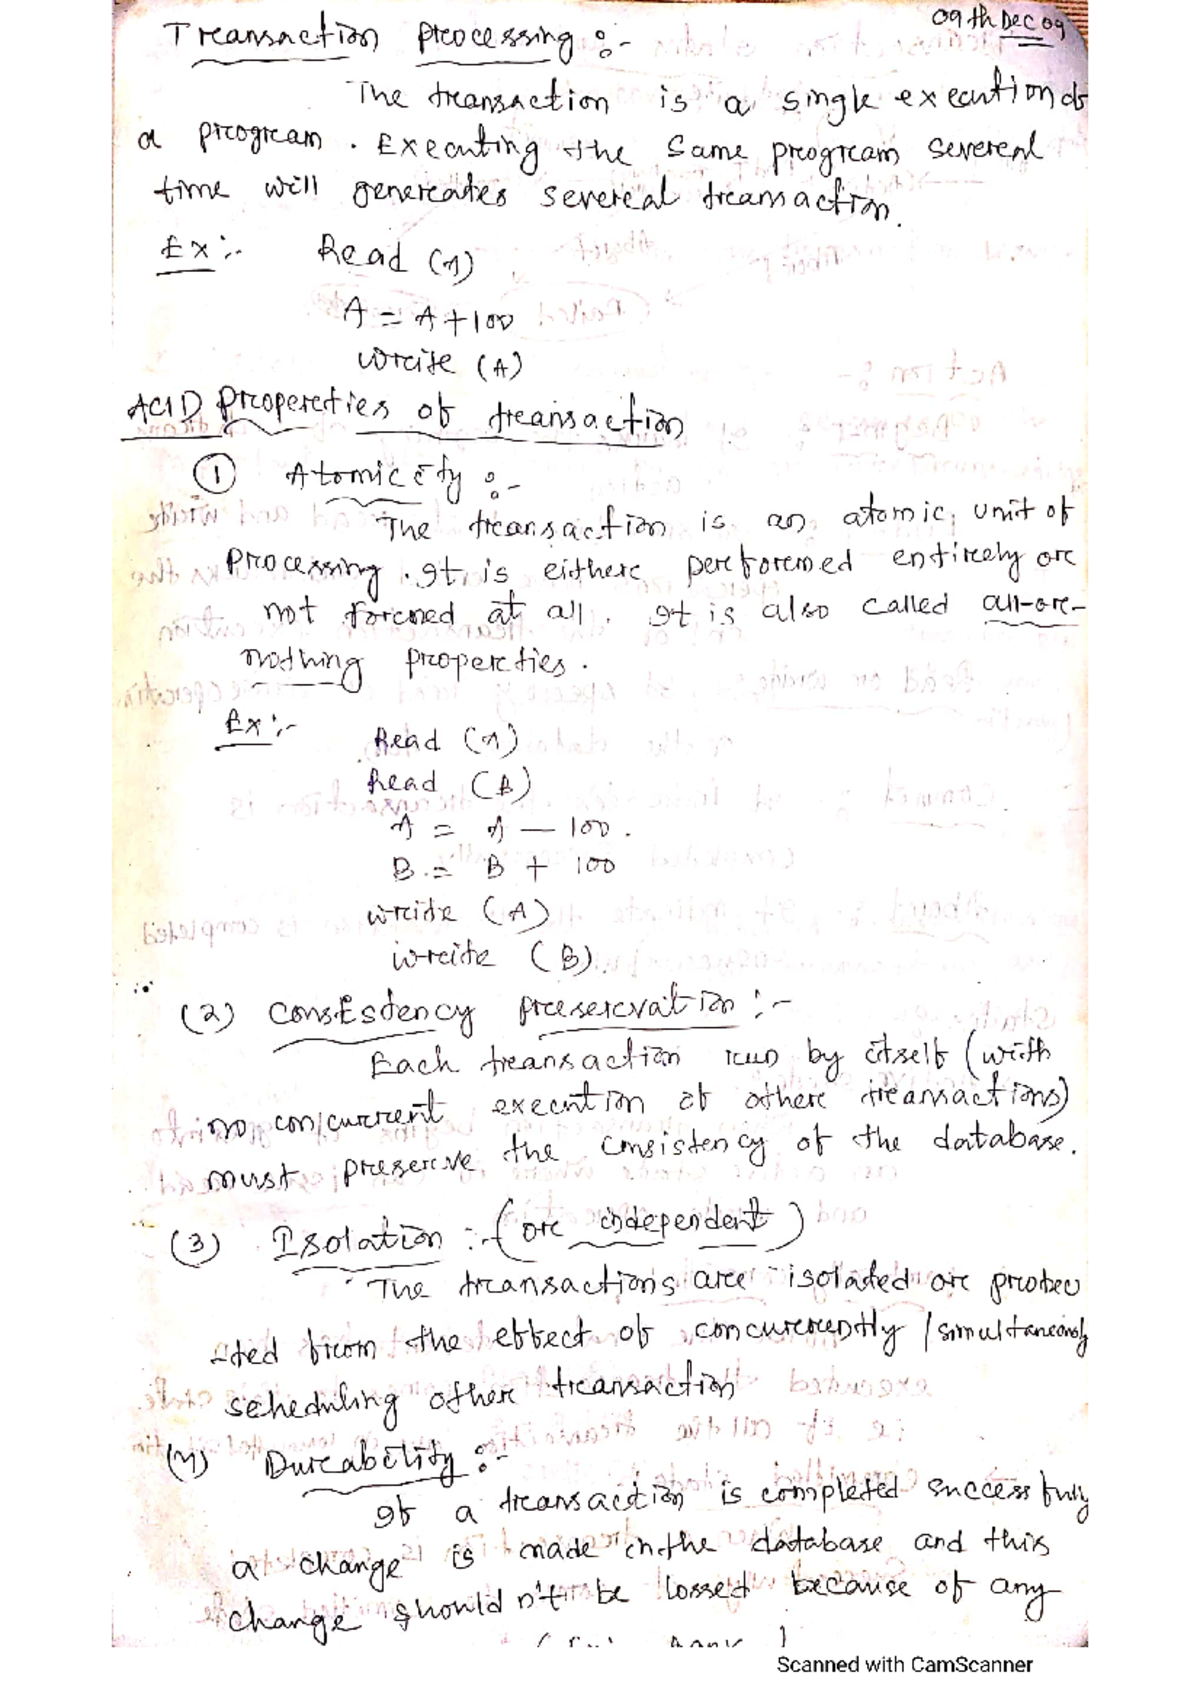 09th Dec 09
Transaction processing :-
The transaction is a single execution of
a program. Executing the same program several
time will generates several transaction.
Ex:- Read (A)
A = A + 100
write (A)
ACID properties of transaction
① Atomicity :-
The transaction is an atomic unit of
processing. It is either performed entirely or
not formed at all. It is also called all-or-
nothing properties.
Ex:- Read (A)
Read (B)
A = A - 100.
B = B + 100
write (A)
write (B).
(2) Consistency preservation :-
Each transaction run by itself (with
no concurrent execution of other transactions)
must preserve the consistency of the database.
(3) Isolation :- (or independent)
The transactions are isolated or protec
-ted from the effect of concurrently / simultaneously
scheduling other transaction
(4) Durability :-
If a transaction is completed successfully
a change is made in the database and this
change should n't be lossed because of any
Scanned with CamScanner